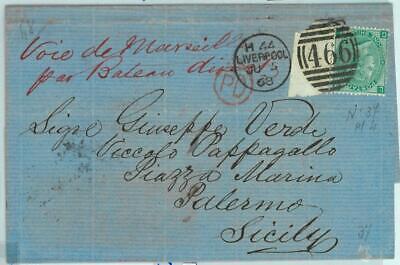 Voie de Marseille
par Bateau direct
H 44
LIVERPOOL
JU 5
68
466
PD
Sigr Giuseppe Verdi
Viccolo Pappagallo
Piazza Marina
Palermo
Sicily
Pl 4